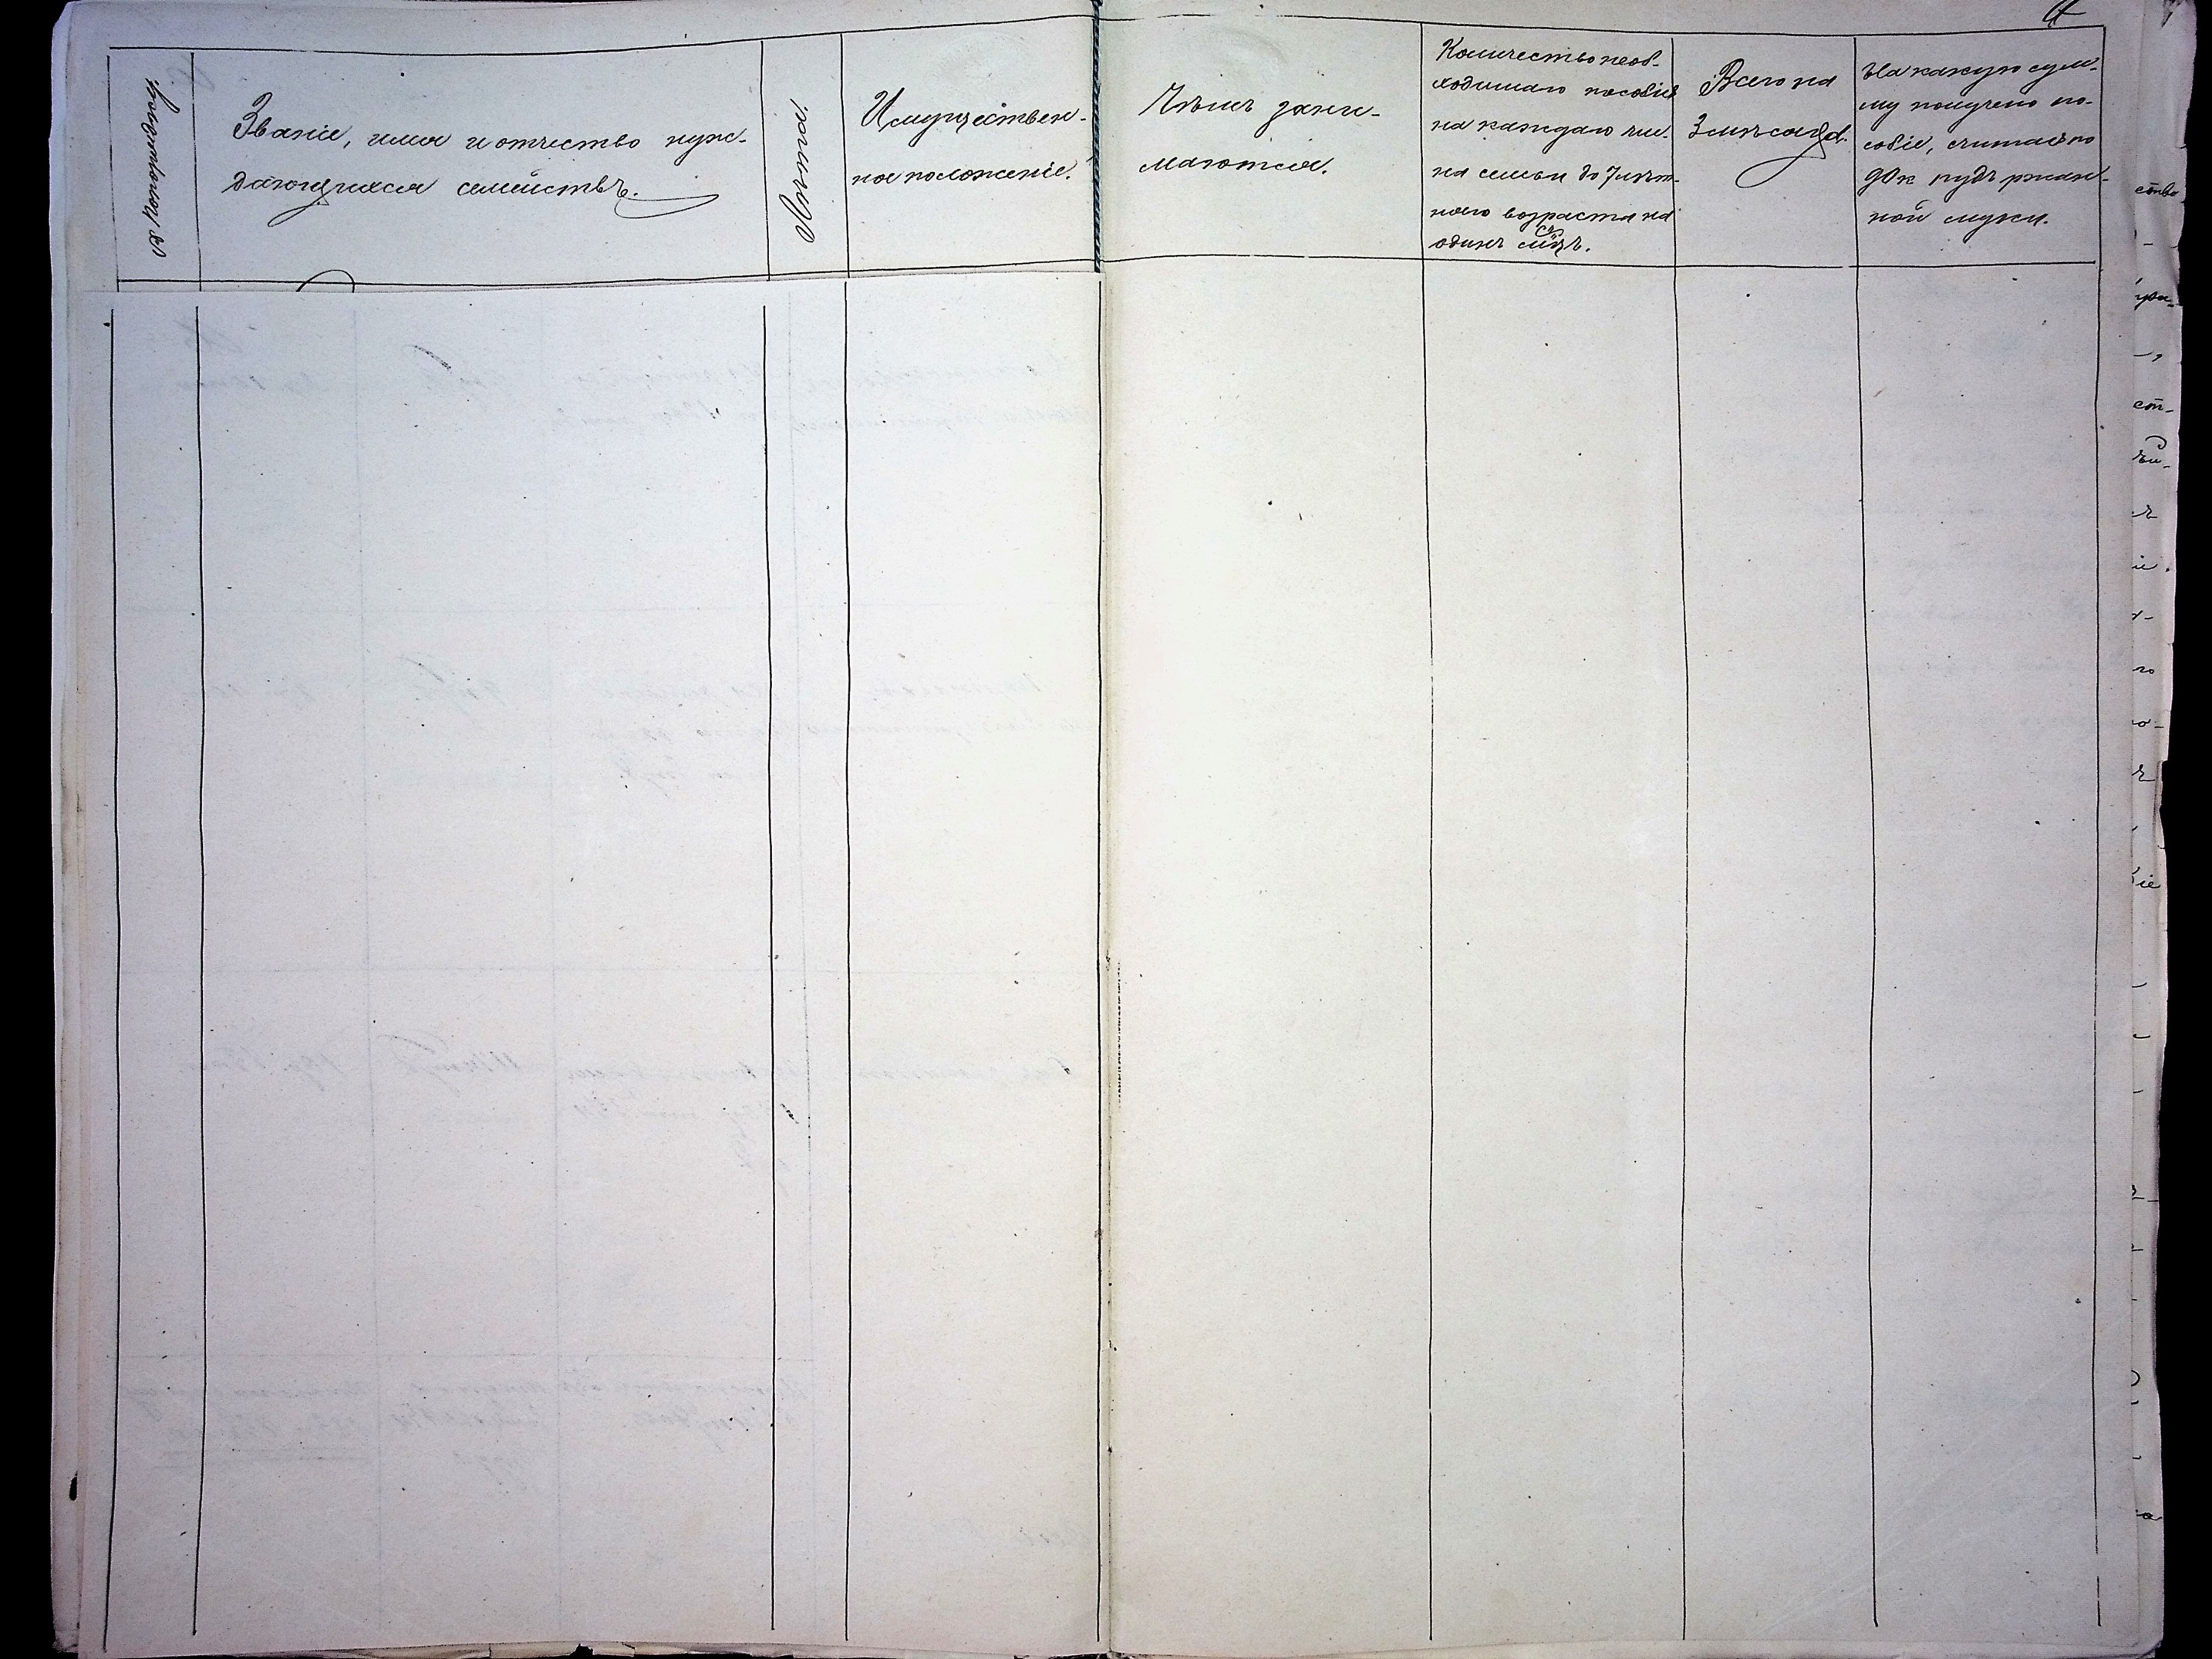 № по порядку.
Званіе, имя и отчество нуж-
дающихся семействъ.
Лѣта.
Имуществен-
ное положеніе.
Чѣмъ зани-
маются.
Количество необ-
ходимаго пособія
на каждаго чле-
на семьи до 7 лѣт-
няго возраста на
одинъ мѣсцъ.
Всего на
3 мѣсяца.
На какую сум-
му получено по-
собіе, считая по
90 к пудъ ржан-
ной муки.